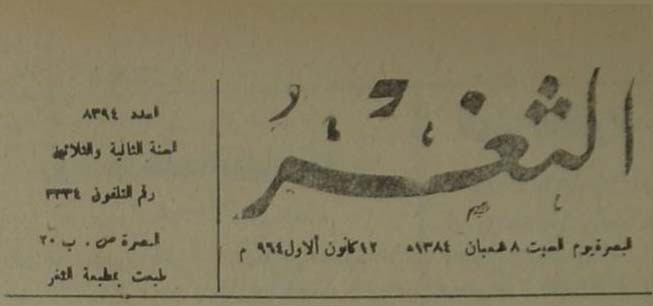 الثغر
البصرة يوم السبت ٨ شعبان ١٣٨٤ه ١٢ كانون ألاول ٩٦٤ م
العدد ٨٣٩٤
السنة الثانية والثلاثون
رقم التلفون ٣٣٣٤
البصرة ص . ب ٢٠
طبعت بمطبعة الثغر